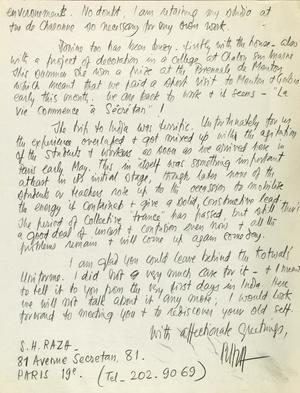 environments. No doubt, I am retaining my studio at
rue de Charonne so necessary for my own work.
Janine too has been busy. Firstly, with the house - also
with a project of decoration in a college at Chalon sur Marne
This summer she won a prize at the Biennale de Menton
which meant that we paid a short visit to Menton &
early this month. We are back to work & it seems - "La
vie commence à Sécrétan"!
The trip to India was terrific. Unfortunately for us
the experience overlapped & got mixed up with the agitation
of the students & workers as soon as we arrived here in
Paris early May. This in itself was something important
atleast in its initial stage, though later none of the
students or teachers rose up to its occasion to mobilize
the energy it contained & give a solid, constructive lead.
The period of collective 'trance' has passed, but still there's
a good deal of unrest & confusion even now & all the
problems remain & will come up again some day.
I am glad you could leave behind the
Uniforme. I did not very much care for it - & I meant
to tell it to you from the very first days in India. Here
we will not talk about it any more; I would look
forward to meeting you & to rediscover your old self.
With affectionate greetings,
RAZA
S.H. RAZA -
81 Avenue Secretan. 81.
PARIS 19e. (Tel - 202 - 90 69)